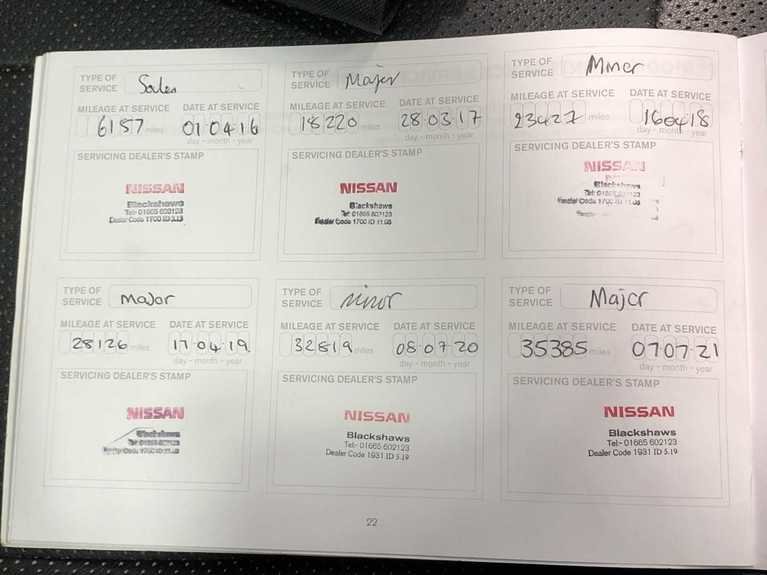 TYPE OF SERVICE Sales
MILEAGE AT SERVICE DATE AT SERVICE
6157 miles 01 04 16
day - month - year
SERVICING DEALER'S STAMP
NISSAN
Blackshaws
Tel: 01665 602123
Dealer Code 1700 ID
TYPE OF SERVICE Major
MILEAGE AT SERVICE DATE AT SERVICE
18220 miles 28 03 17
day - month - year
SERVICING DEALER'S STAMP
NISSAN
Blackshaws
Tel: 01665 602123
Dealer Code 1700 ID 11.08
TYPE OF SERVICE Minor
MILEAGE AT SERVICE DATE AT SERVICE
23427 miles 16 04 18
day - month - year
SERVICING DEALER'S STAMP
NISSAN
Blackshaws
Tel: 01665 602123
Dealer Code 1700 ID 11.08
TYPE OF SERVICE Major
MILEAGE AT SERVICE DATE AT SERVICE
28126 miles 17 04 19
day - month - year
SERVICING DEALER'S STAMP
NISSAN
Blackshaws
Dealer Code 1700 ID
TYPE OF SERVICE minor
MILEAGE AT SERVICE DATE AT SERVICE
32819 miles 08 07 20
day - month - year
SERVICING DEALER'S STAMP
NISSAN
Blackshaws
Tel:- 01665 602123
Dealer Code 1931 ID 5.19
TYPE OF SERVICE Major
MILEAGE AT SERVICE DATE AT SERVICE
35385 miles 07 07 21
day - month - year
SERVICING DEALER'S STAMP
NISSAN
Blackshaws
Tel:- 01665 602123
Dealer Code 1931 ID 5.19
22